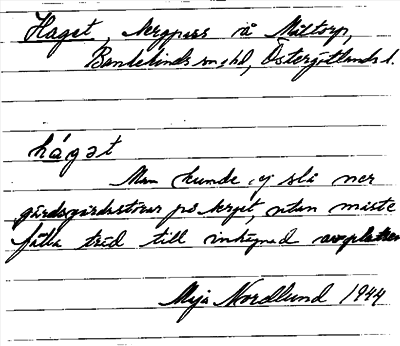 Haget, bergpass å Mältorp,
Bankekinds sn, hd, Östergötlands l.
hágət
Man kunde ej slå ner
gärdsgårdsstörar på berget, utan måste
fälla träd till inhägnad av platsen
Maja Nordlund 1944